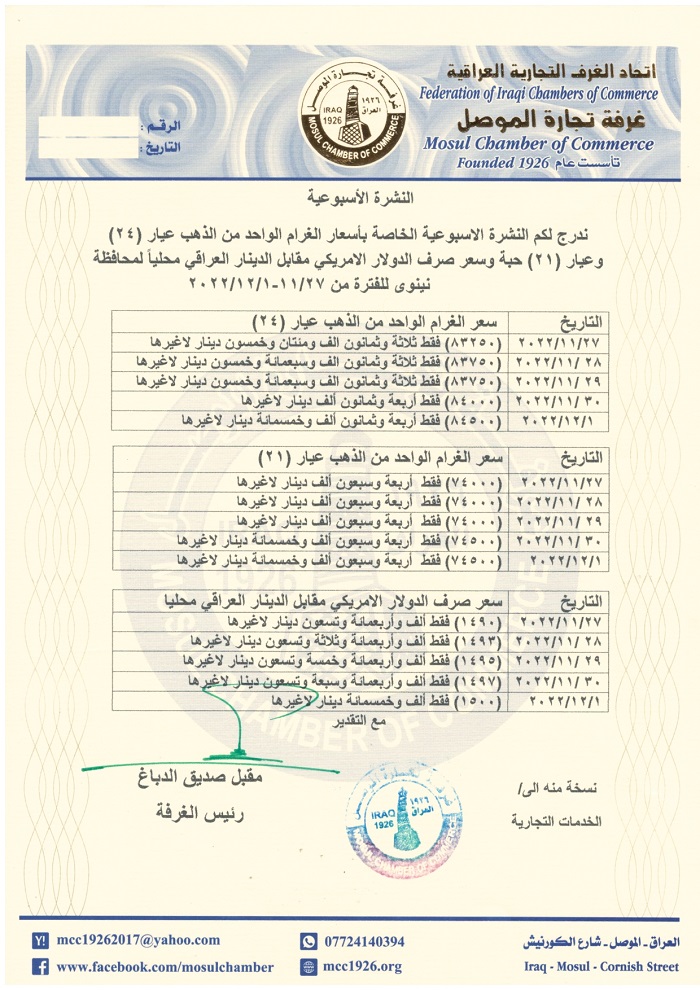 اتحاد الغرف التجارية العراقية
Federation of Iraqi Chambers of Commerce
غرفة تجارة الموصل
Mosul Chamber of Commerce
Founded 1926 تأسست عام
غرفة تجارة الموصل
IRAQ ١٩٢٦
1926 العراق
MOSUL CHAMBER OF COMMERCE
الرقم :
التاريخ :
النشرة الأسبوعية
ندرج لكم النشرة الاسبوعية الخاصة بأسعار الغرام الواحد من الذهب عيار (٢٤)
وعيار (٢١) حبة وسعر صرف الدولار الامريكي مقابل الدينار العراقي محلياً لمحافظة
نينوى للفترة من ١١/٢٧-٢٠٢٢/١٢/١
التاريخ سعر الغرام الواحد من الذهب عيار (٢٤)
٢٠٢٢/١١/٢٧ (٨٣٢٥٠) فقط ثلاثة وثمانون الف ومئتان وخمسون دينار لاغيرها
٢٠٢٢/١١/٢٨ (٨٣٧٥٠) فقط ثلاثة وثمانون الف وسبعمائة وخمسون دينار لاغيرها
٢٠٢٢/١١/٢٩ (٨٣٧٥٠) فقط ثلاثة وثمانون الف وسبعمائة وخمسون دينار لاغيرها
٢٠٢٢/١١/٣٠ (٨٤٠٠٠) فقط أربعة وثمانون ألف دينار لاغيرها
٢٠٢٢/١٢/١ (٨٤٥٠٠) فقط أربعة وثمانون ألف وخمسمائة دينار لاغيرها
التاريخ سعر الغرام الواحد من الذهب عيار (٢١)
٢٠٢٢/١١/٢٧ (٧٤٠٠٠) فقط أربعة وسبعون ألف دينار لاغيرها
٢٠٢٢/١١/٢٨ (٧٤٠٠٠) فقط أربعة وسبعون ألف دينار لاغيرها
٢٠٢٢/١١/٢٩ (٧٤٠٠٠) فقط أربعة وسبعون ألف دينار لاغيرها
٢٠٢٢/١١/٣٠ (٧٤٥٠٠) فقط أربعة وسبعون ألف وخمسمائة دينار لاغيرها
٢٠٢٢/١٢/١ (٧٤٥٠٠) فقط أربعة وسبعون ألف وخمسمائة دينار لاغيرها
التاريخ سعر صرف الدولار الامريكي مقابل الدينار العراقي محليا
٢٠٢٢/١١/٢٧ (١٤٩٠) فقط ألف وأربعمائة وتسعون دينار لاغيرها
٢٠٢٢/١١/٢٨ (١٤٩٣) فقط ألف وأربعمائة وثلاثة وتسعون دينار لاغيرها
٢٠٢٢/١١/٢٩ (١٤٩٥) فقط ألف وأربعمائة وخمسة وتسعون دينار لاغيرها
٢٠٢٢/١١/٣٠ (١٤٩٧) فقط ألف وأربعمائة وسبعة وتسعون دينار لاغيرها
٢٠٢٢/١٢/١ (١٥٠٠) فقط ألف وخمسمائة دينار لاغيرها
مع التقدير
مقبل صديق الدباغ
رئيس الغرفة
نسخة منه الى/
الخدمات التجارية
غرفة تجارة الموصل
IRAQ ١٩٢٦
1926 العراق
MOSUL CHAMBER OF COMMERCE
mcc19262017@yahoo.com
07724140394
العراق ـ الموصل ـ شارع الكورنيش
www.facebook.com/mosulchamber
mcc1926.org
Iraq - Mosul - Cornish Street